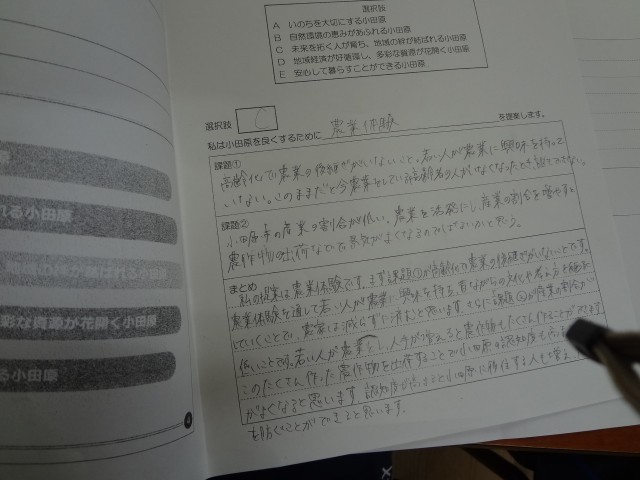 選択肢
A いのちを大切にする小田原
B 自然環境の恵みがあふれる小田原
C 未来を拓く人が育ち、地域の絆が結ばれる小田原
D 地域経済が好循環し、多彩な資源が花開く小田原
E 安心して暮らすことができる小田原
選択肢 C
私は小田原を良くするために 農業体験 を提案します。
課題①
高齢化で農業の後継ぎがいないこと。若い人が農業に興味を持って
いない。このままだと今農業をしている高齢者の人がいなくなったとき
課題②
小田原市の産業の割合が低い。農業を活発にし、産業の割合を増やす。
農作物の出荷などで景気がよくなるのではないかと思う。
まとめ
私の提案は農業体験です。まず課題①が高齢化で農業の後継ぎがいないことです。
農業体験を通して若い人が農業に興味を持ち、昔ながらの
していくことで、農業は減らずに済むと思います。さらに課題②が産業の割合が
低いことです。若い人が農業をし、人手が増えると農作物もたくさん作ることができます
このたくさん作った農作物を出荷することで小田原の認知度も
がよくなると思います。認知度が高まると小田原に移住する人も増え
も防ぐことができると思います。
れる小田原
地域の絆が結ばれる小田原
彩な資源が花開く小田原
る小田原
4